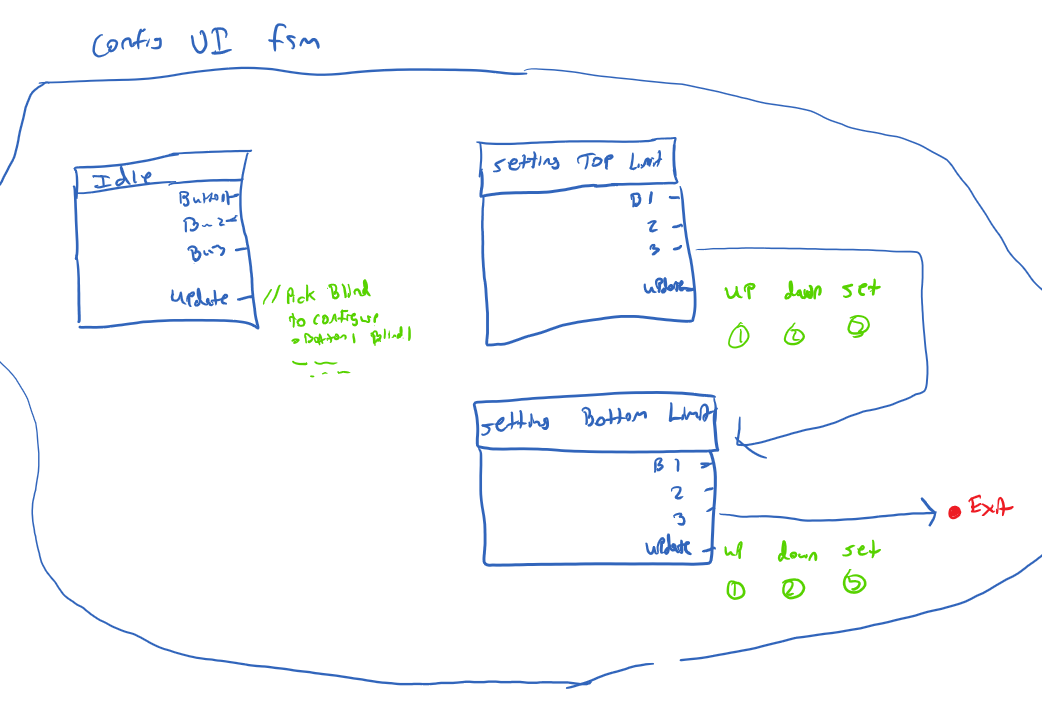 Config UI fsm
Idle
Button
Bu 2
Bu 3
update
// Pick Blind
to configure
Button 1 Blind 1
setting TOP Limit
B 1
2
3
update
UP down set
1 2 3
setting Bottom Limit
B 1
2
3
update
Exit
up down set
1 2 3